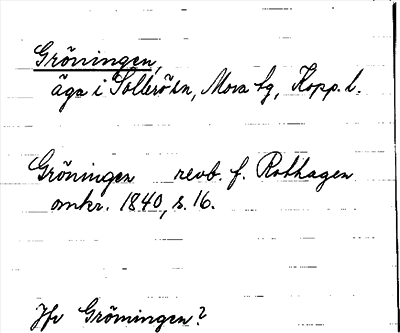 Gröningen,
äga i Sollerö sn, Mora tg, Kopp. l.
Gröningen revb. f. Rothagen
omkr. 1840, s. 16.
Jfr Grömingen?